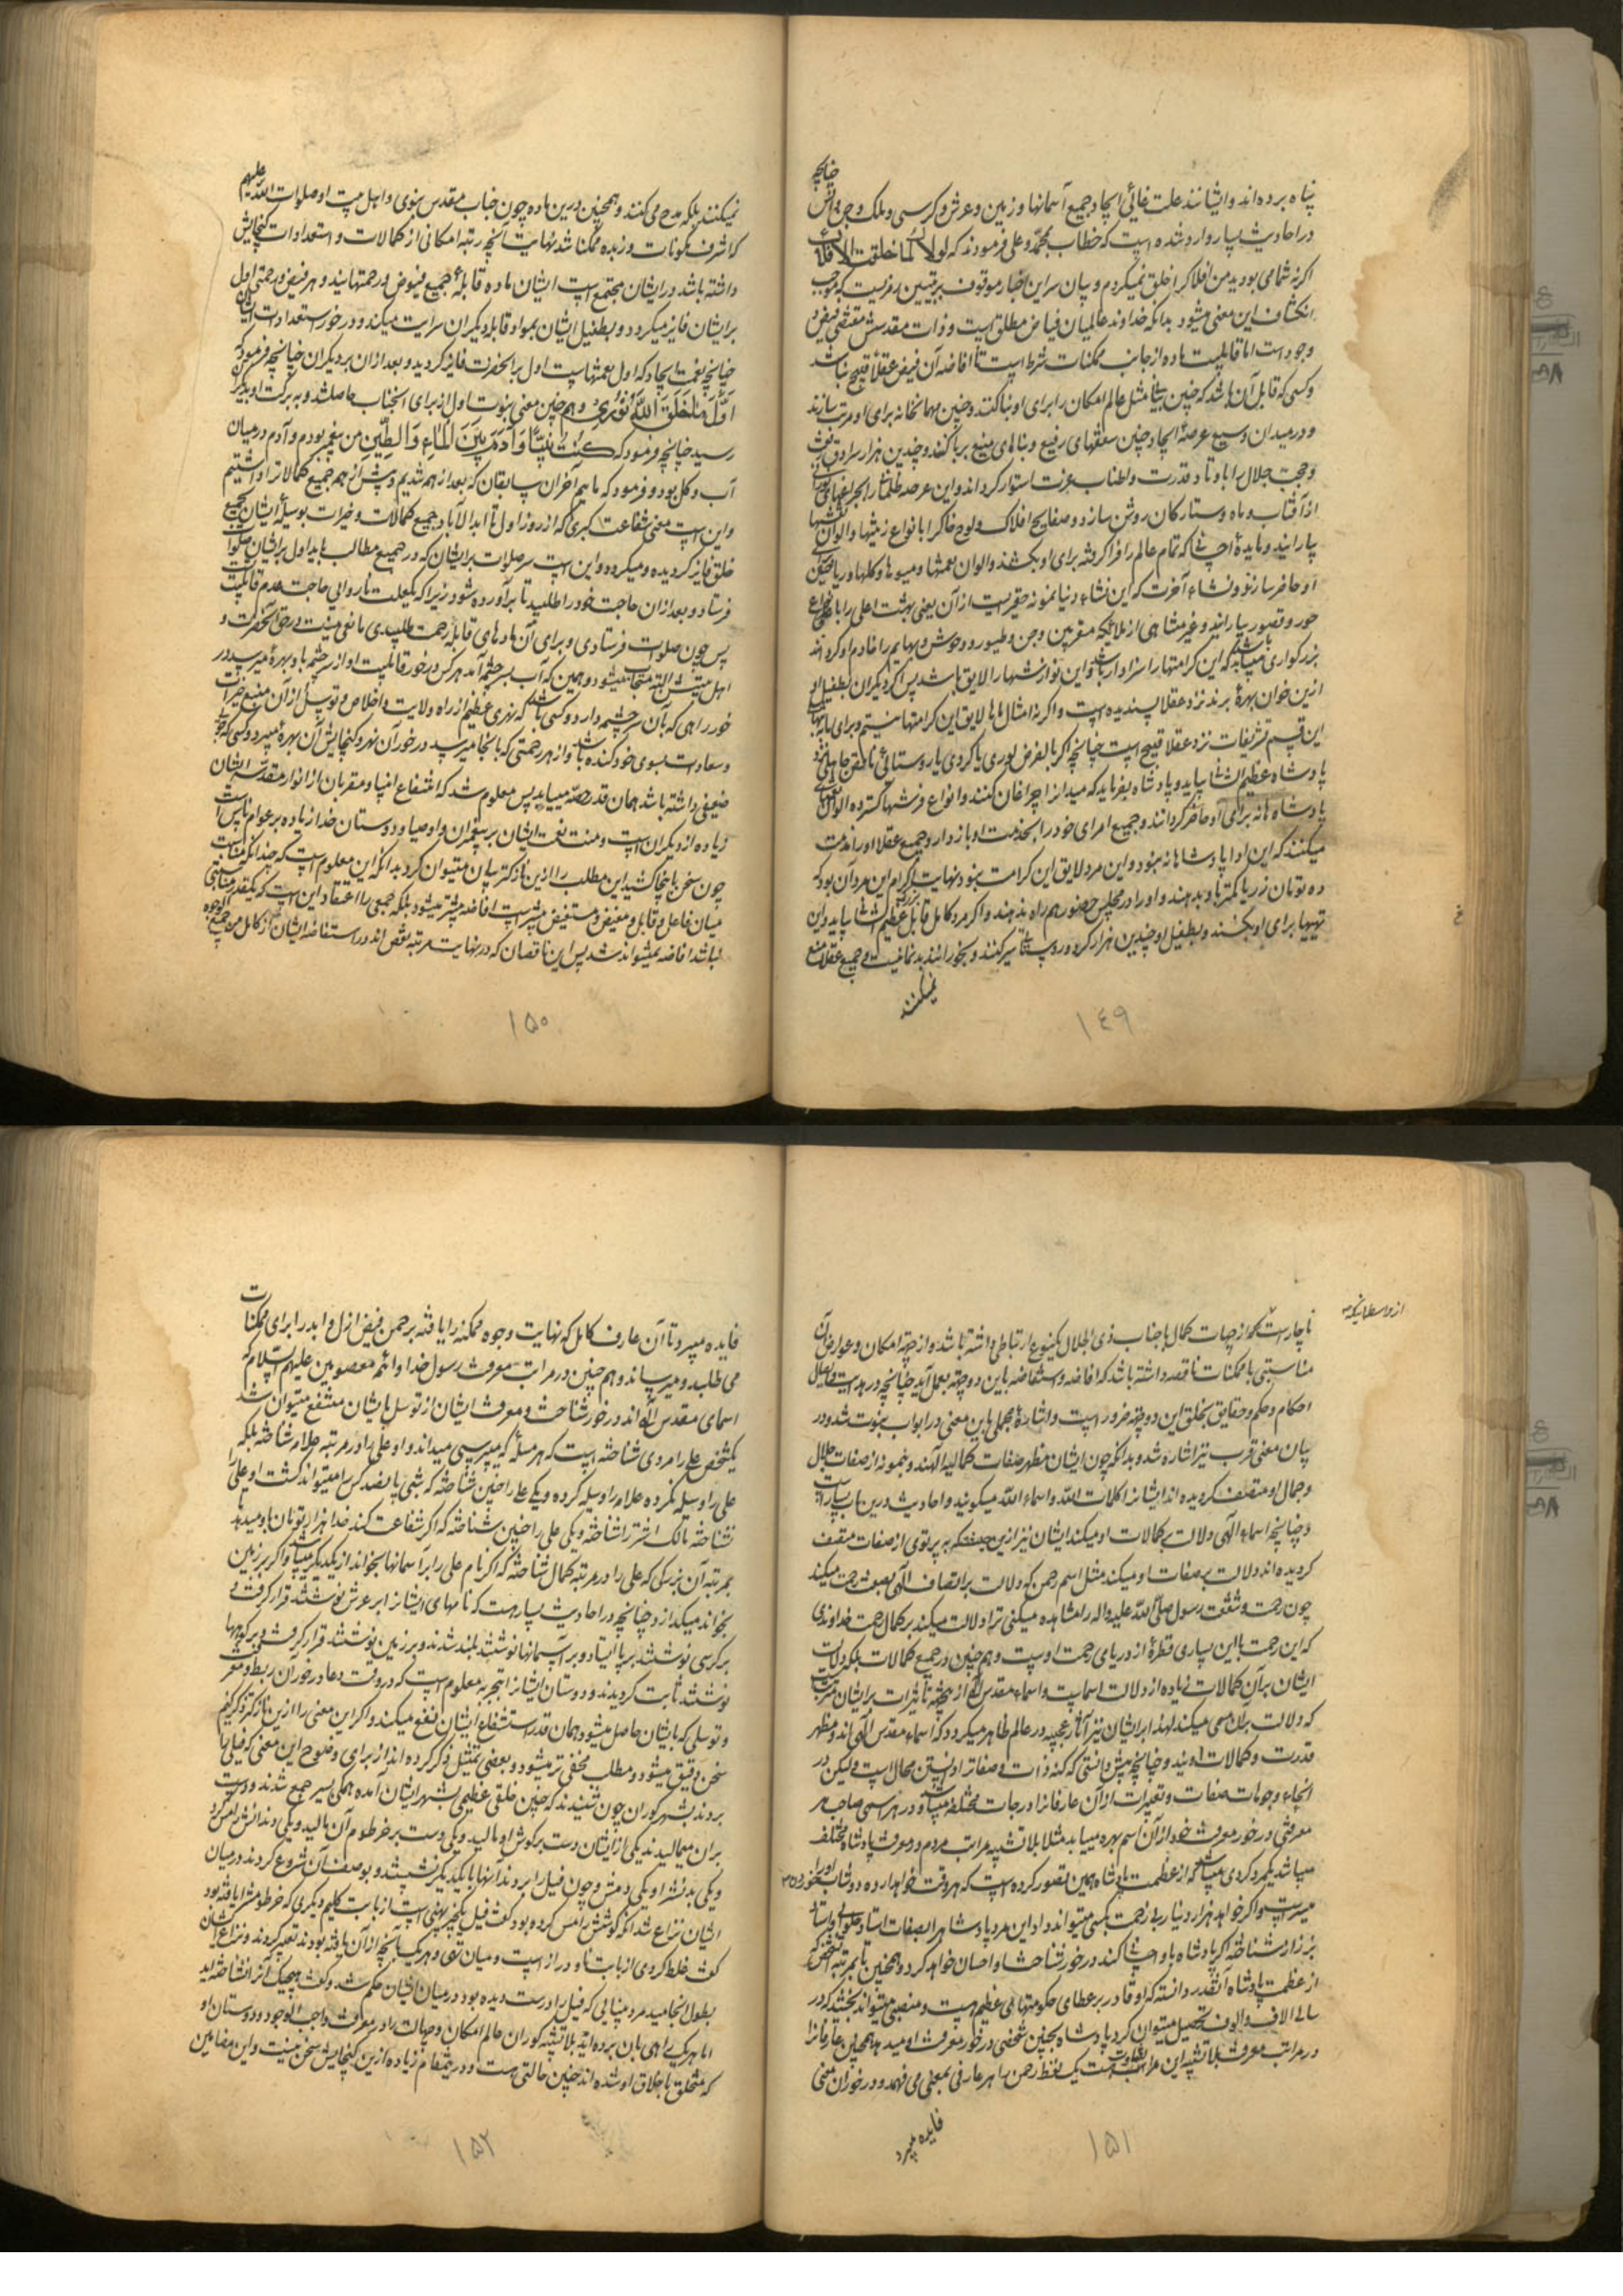 چنانچه
پناه برده‌اند و ایشانند علت غائی ایجاد جمیع آسمانها و زمین و عرش و کرسی و ملک و جن و انس
در احادیث بسیار وارد شده است که خطاب بمحمد و علی فرمودند که لولاک لما خلقت الافلاک
اگر نه شما می بودید من افلاک را خلق نمیکردم و بیان سر این اخبار موقوف بر تبیین رمزیست که موجب
انکشاف این معنی میشود بدانکه خداوند عالمیان فیاض مطلق است و ذات مقدسش مقتضی فیض و
وجود است اما قابلیت ماده از جانب ممکنات شرط است تا افاضه آن فیض عقلا قبیح نباشد
و کسی که قابل آن باشد که چنین بنائی مثل عالم امکان را برای او بنا کنند و چنین مهمانخانه برای او مرتب سازند
و در میدان وسیع عرصهٔ ایجاد چنین سقفهای رفیع و بناهای منیع برپا کنند و چندین هزار سرادق رفعت
و حجب جلال را باوتاد قدرت و اطناب عزت استوار گرداند و این عرصه ظلمانی را بچراغهای نورانی
از آفتاب و ماه و ستارگان روشن سازد و صفایح افلاک و لوح خاک را بانواع زینتها و الوان نقشها
بیارایند و مایدهٔ احسانی که تمام عالم را فرا گرفته برای او بکشند و الوان نعمتها و میوها و گلها و ریاحین برای
او حاضر سازند و نشاء آخرت که این نشاء دنیا نمونه حقیریست از آن یعنی بهشت اعلی را بانواع
حور و قصور بیارایند و غیر متناهی از ملائکه مقربین و جن و طیور و وحوش و بهایم را خادم او گردانند
بزرگواری میباید که این کرامتها را سزاوار باشد و این نوازشها را لایق باشد پس اگر دیگران بطفیل او
ازین خوان بهرهٔ برند نزد عقلا پسندیده است و اگر نه امثال ماها لایق این کرامتها نیستیم و برای ما بتنهائی
این قسم تشریفات نزد عقلا قبیح است چنانچه اگر بالفرض لوری یا کردی یا روستائی ناقص جاهلی نزد
پادشاه عظیم الشانی بیاید و پادشاه بفرماید که میدان را چراغان کنند و انواع فرشها گسترده الوان نعمتهای
پادشاهانه برای او حاضر گردانند و جمیع امرای خود را بخدمت او بازدارد جمیع عقلا او را مذمت
میکنند که این ادا پادشاهانه نبود و این مرد لایق این کرامت نبود نهایت اکرام این مرد آن بود که
ده تومان زر یا کمتر باو بدهند و او را در مجلس حضور هم راه ندهند و اگر مرد کامل قابل بزرگ عظیم الشانی بیاید و این
تهیها برای او بکشند و بطفیل او چندین هزار کرد و روستائی سیر کنند و بخورانند بدنما نیست و جمیع عقلا منع
نمیکنند
۱۴۹
علیهم
نمیکنند بلکه مدح می کنند و همچنین درین ماده چون جناب مقدس نبوی و اهل بیت او صلوات الله
که اشرف مکونات و زبده ممکنات شد نهایت آنچه رتبه امکانی از کمالات و استعدادات گنجایش
داشته باشد در ایشان مجتمع است ایشان ماده قابلهٔ جمیع فیوض و رحمتهایند و هر فیض و رحمتی اول
بر ایشان فایز میگردد و بطفیل ایشان بمواد قابله دیگران سرایت میکند و در خور استعدادات ایشان
چنانچه نعمت ایجاد که اول نعمتهاست اول بر آنحضرت فایز گردید و بعد از ان بر دیگران چنانچه فرمود که
اول ما خلق الله نوری و هم چنین معنی نبوت اول از برای آنجناب حاصل شد و به برکت او بدیگران
رسید چنانچه فرمود که کنت نبیا و آدم بین الماء والطین من پیغمبر بودم و آدم در میان
آب و گل بود و فرمود که ما هم آخران سابقان که بعد از همه شدیم و پیش از همه جمیع کمالات را داشتیم
و این است معنی شفاعت کبری که از روز اول تا ابدالآباد جمیع کمالات و خیرات بوسیلهٔ ایشان بجمیع
خلق فایز گردیده و میگردد و این است سر صلوات بر ایشان که در جمیع مطالب باید اول بر ایشان صلوات
فرستاد و بعد از ان حاجت خود را طلبید تا برآورده شود زیرا که یکعلت ناروائی حاجت عدم قابلیت تست
پس چون صلوات فرستادی و برای آن ماده‌های قابله رحمت طلبیدی مانعی نیست در حق آنحضرت و
اهل بیتش البته مستجاب میشود و همین که آب بسرچشمه آمد هر کس در خور قابلیت او از سرچشمه باو بهره میرسد در
خور راهی که بآن سرچشمه دارد و کسی باشد که نهری عظیم از راه ولایت و اخلاص و توسل از آن منبع خیرات
و سعادات بسوی خود کنده باشد و از هر رحمتی که بآنجا میرسد در خور آن نهر و گنجایش آن بهره میبرد و کسی که
ضعیفی داشته باشد همان قدر حصه مییابد پس معلوم شد که انتفاع انبیا و مقربان از انوار مقدسه ایشان
زیاده از دیگران است و منت نعمت ایشان بر پیغمبران و اوصیا و دوستان خدا زیاده بر عوام ناس است
چون سخن باینجا کشید این مطلب را ازین نازکتر بیان میتوان کرد بدانکه این معلوم است که چندانکه مناسبت
میان فاعل و قابل و مفیض و مستفیض بیشتر است افاضه بیشتر میشود بلکه جمعی را اعتقاد این است که یکقدر مناسبتی
نباشد افاضه نمیتواند شد پس این ناقصان که در نهایت مرتبه نقص اند در استفاضه ایشان از کامل من جمیع الوجوه
۱۵۰
از واسطه نیکو
ناچار است که از جهات کمال با جناب ذی الجلال یکنوع ارتباطی داشته باشد و از جهة امکان و عوارض آن
مناسبتی با ممکنات ناقصه داشته باشد که افاضه و استفاضه باین دو جهة بعمل آید چنانچه در هدایت و ایصال
احکام و حکم و حقایق بخلق این دو جهة ضرور است و اشارهٔ مجملی باین معنی در ابواب نبوت شد و در
بیان معنی قرب نیز اشاره شد و بدانکه چون ایشان مظهر صفات کمالیه الهند و بنمونه از صفات جلال
و جمال او متصف گردیده اند ایشانرا کلمات الله و اسماء الله میگویند و احادیث درین باب بسیار است
و چنانچه اسماء الهی دلالت بر کمالات او میکند ایشان نیز ازین حیثیت که به پرتوی از صفات متصف
گردیده اند دلالت بر صفات او میکند مثل اسم رحمن که دلالت بر اتصاف الهی بصفت رحمت میکند
چون رحمت و شفقت رسول صلی الله علیه و اله را مشاهده میکنی ترا دلالت میکند بر کمال رحمت خداوندی
که این رحمت با این بسیاری قطرهٔ از دریای رحمت اوست و هم چنین در جمیع کمالات بلکه دلالت
ایشان بر آن کمالات زیاده از دلالت اسماست و اسماء مقدس اله از جهة تاثیرات بر ایشان مترتبست
که دلالت بر آن مسمی میکند لهذا بر ایشان نیز آثار عجیبه در عالم ظاهر میگردد که اسماء مقدس الهی اند و مظهر
قدرت و کمالات اویند و چنانچه پیش دانستی که کنه ذات و صفات را دانستن محال است و لیکن در
انحاء وجوهات صفات و تعبیرات از آن عارفانرا درجات مختلفه میباشد و در هر اسمی صاحب هر
معرفتی در خور معرفت خود از آن اسم بهره مییابد مثلا بلا تشبیه مراتب مردم در معرفت پادشاه مختلف
میباشد یکمرد کردی میباشد که از عظمت پادشاه همین تصور کرده است که هر وقت خواهد ارده و دوشاب او را
میسر است و اگر خواهد هزار دینار بی زحمت بکسی میتواند داد این مرد پادشاه را بصفات استاد حلوائی و استاد
بزاز شناخته اگر پادشاه باو احسان کند در خور شناختش باو احسان خواهد کرد و همچنین تا بمرتبه شخصی که
از عظمت پادشاه آنقدر دانسته که او قادر بر عطای حکومتهای عظیم هست و منصبی میتواند بخشید که در
سالی الاف و الوف تحصیل میتوان کرد پادشاه بچنین شخصی در خور معرفت او میدهد همچنین عارفانرا
در مراتب معرفت بلا تشبیه این مراتب تفاوت هست یک لفظ رحمن را هر عارفی بمعنی می فهمد و در خور آن معنی
فایده میبرد
۱۵۱
فایده میبرد تا آن عارف کامل که نهایت وجوه ممکنه را یافته بر حمن فیض ازل و ابد را برای ممکنات
می طلبد و میرساند و هم چنین در مراتب معرفت رسول خدا و ائمه معصومین علیهم السلام که
اسمای مقدس اله اند در خور شناخت و معرفت ایشان از توسل بایشان منتفع میتوان شد
یکشخص علی را مردی شناخته است که هر مسئله که میپرسی میداند و او علی را در مرتبه علامه شناخته بلکه
علی را وسیله نکرده علامه را وسیله کرده و یکی علی را چنین شناخته که شبی پانصد کس را میتواند کشت او علی را
نشناخته مالک اشتر را شناخته و یکی علی را چنین شناخته که اگر شفاعت کند خدا هزار تومان باو میدهد
بمرتبه آن بزرگی که علی را در مرتبه کمال شناخته که اگر نام علی را بر آسمانها بخواند از یکدیگر میپاشد و اگر بر زمین
بخواند میگدازد چنانچه در احادیث بسیار هست که نامهای ایشانرا بر عرش نوشتند قرار گرفت و
بر کرسی نوشتند برپا ایستاد و بر آسمانها نوشتند بلند شدند و بر زمین نوشتند قرار گرفت و بر کوهها
نوشتند ثابت گردیدند و دوستان ایشانرا بتجربه معلوم است که در وقت دعا در خور آن ربط و معرفت
و توسلی که بایشان حاصل میشود همان قدر استشفاع ایشان نفع میکند و اگر این معنی را ازین نازکتر ذکر کنیم
سخن دقیق میشود و مطلب مخفی تر میشود و بعضی تمثیل ذکر کرده اند از برای وضوح این معنی که فیلی را
بردند بشهر کوران چون شنیدند که چنین خلقی عظیمی بشهر ایشان آمده همگی بسیر جمع شدند و دست
بر آن میمالیدند یکی از ایشان دست بر گوش او مالید و یکی دست بر خرطوم آن مالید و یکی دندانش لمس کرد
و یکی بدنش را و یکی دمش و چون فیل را بردند اینها با یکدیگر نشستند و بوصف آن شروع کردند در میان
ایشان نزاع شد آنکه گوشش را مس کرده بود گفت فیل یکچیز پهنی است از بابت گلیم دیگری که خرطومش را یافته بود
گفت غلط کردی از بابت ناو دراز است و میان تهی و هر یک بآنچه از آن یافته بودند تعبیر کردند و نزاع ایشان
بطول انجامید مرد بینائی که فیل را درست دیده بود در میان ایشان حکم شد و گفت هیچیک آنرا نشناخته اید
اما هر یک راهی بآن برده اید بلا تشبیه کوران عالم امکان و جهالت را در معرفت واجب الوجود و دوستان او
که متخلق باخلاق او شده اند چنین حالتی هست و در ینمقام زیاده ازین گنجایش سخن نیست و این مضامین
۱۵۲